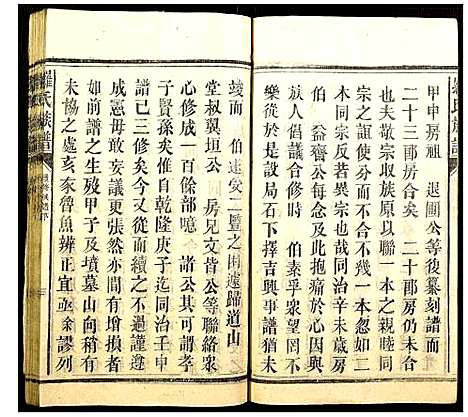 甲申房祖　退圃公等復纂刻譜而
二十三郡房合矣　二十郡房仍未合
也夫敬宗収族原以聯一本而敦一
宗之誼使分而不合不幾一本忽如二
本同宗反同異宗也哉同治辛未歲房
伯　益齋公每念及此抱痛於心因與
族人倡議合修時　伯素孚衆望罔不
樂從於是設局石下擇吉興事譜猶未
竣而　伯遽受二豎之困遽歸道山
堂叔翼垣公　房兄文皆公等聯絡衆
心修成一百餘部噫　諸公其可謂孝
子賢孫矣惟自乾隆庚子迄同治壬申
譜已三修矣今從而續之不過謹遵
成憲何敢妄議更張然亦間有增損者
如前之生殁甲子及墳墓山向稍有
未協之處亥豕魯魚辨正宜急謬列
羅氏族譜
羅氏族譜